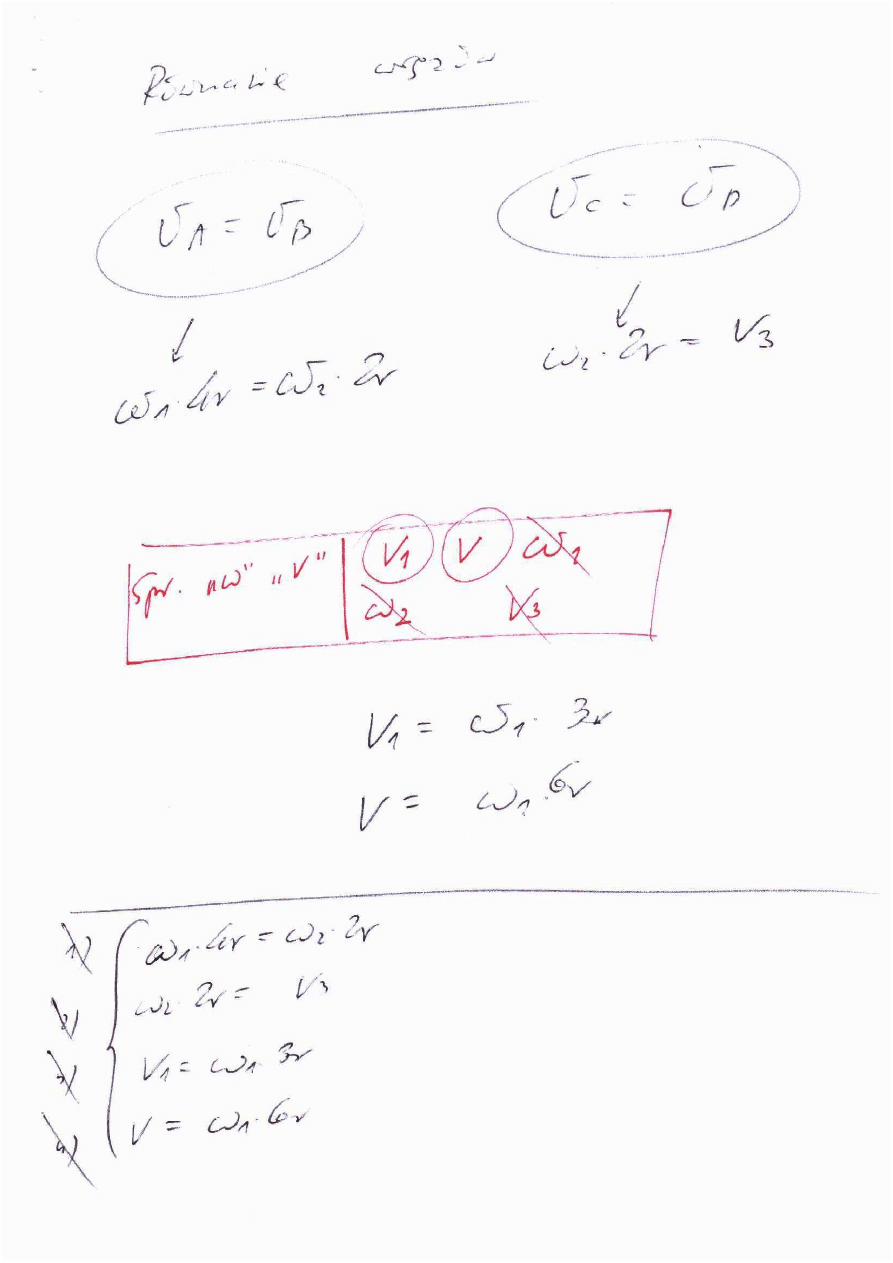 Równanie więzów
υA = υB
υC = υD
ω1·4r = ω2·2r
ω2·2r = V3
Spr. „ω" „V" | V1 V ω1
ω2 V3
V1 = ω1· 3r
V = ω1·6r
1) ω1·4r = ω2·2r
2) ω2·2r = V3
3) V1 = ω1·3r
4) V = ω1·6r